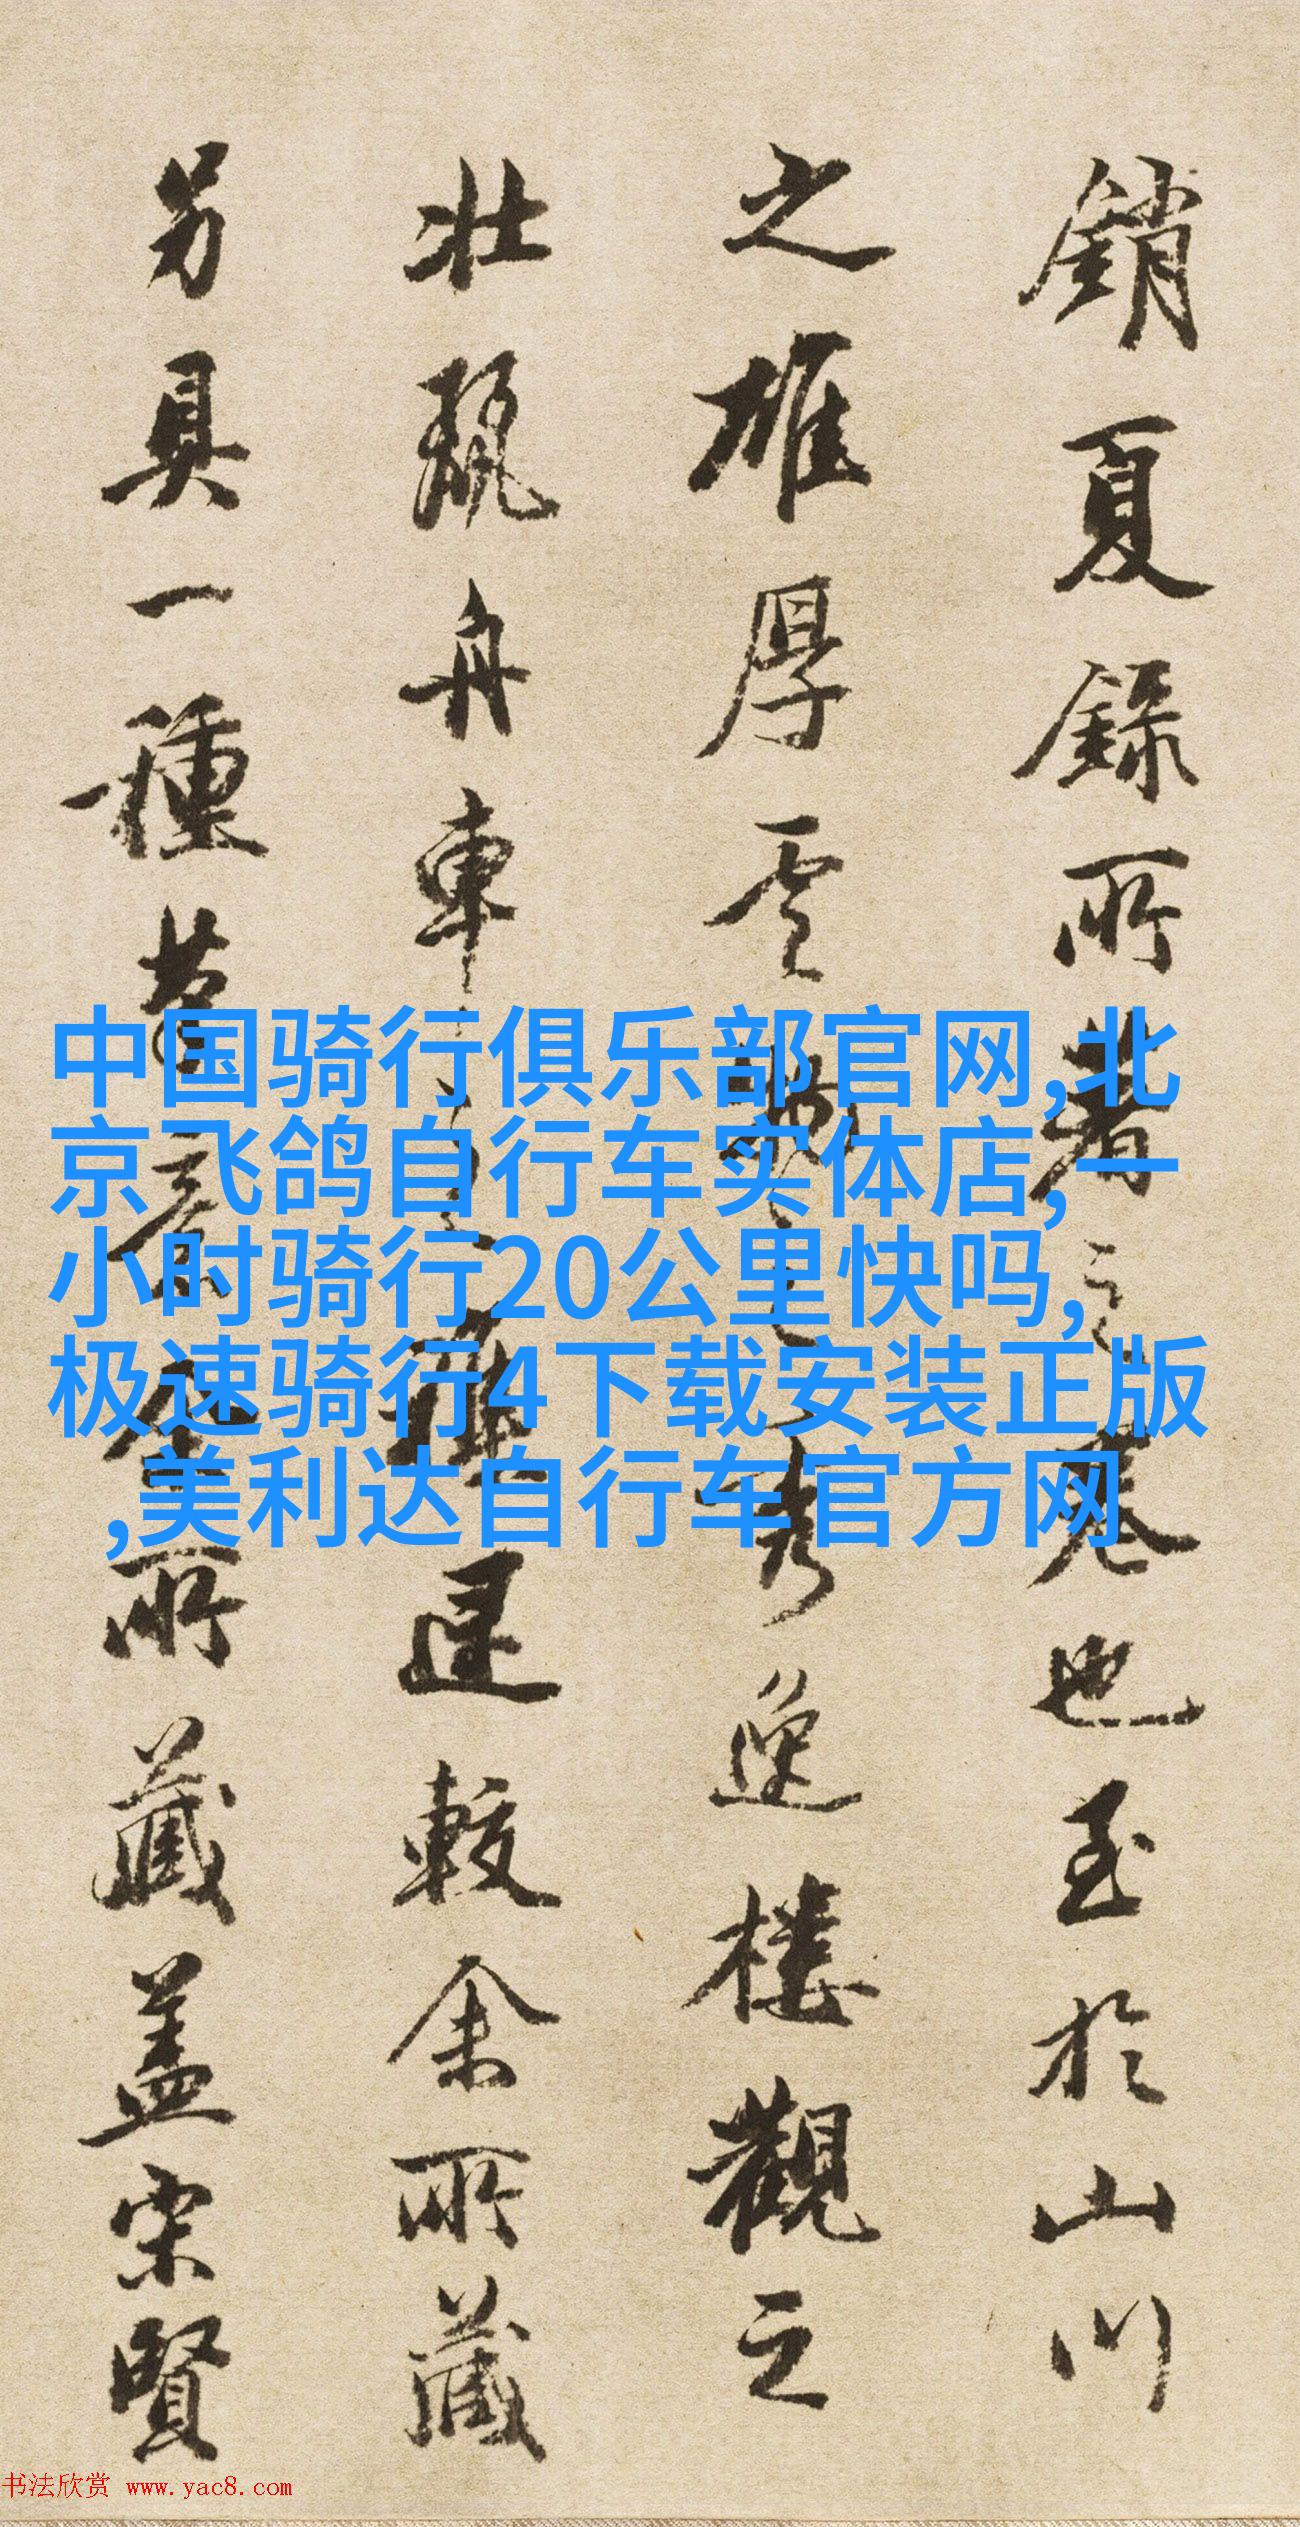 銷夏録所著之卷也至於山川
之雄厚雲物之秀逸樓觀之
壯麗舟車雜遝較余所藏
另具一種筆意余所藏蓋宋賢
中国骑行俱乐部官网,北
京飞鸽自行车实体店,一
小时骑行20公里快吗,
极速骑行4下载安装正版
,美利达自行车官方网
书法欣赏 www.yac8.com